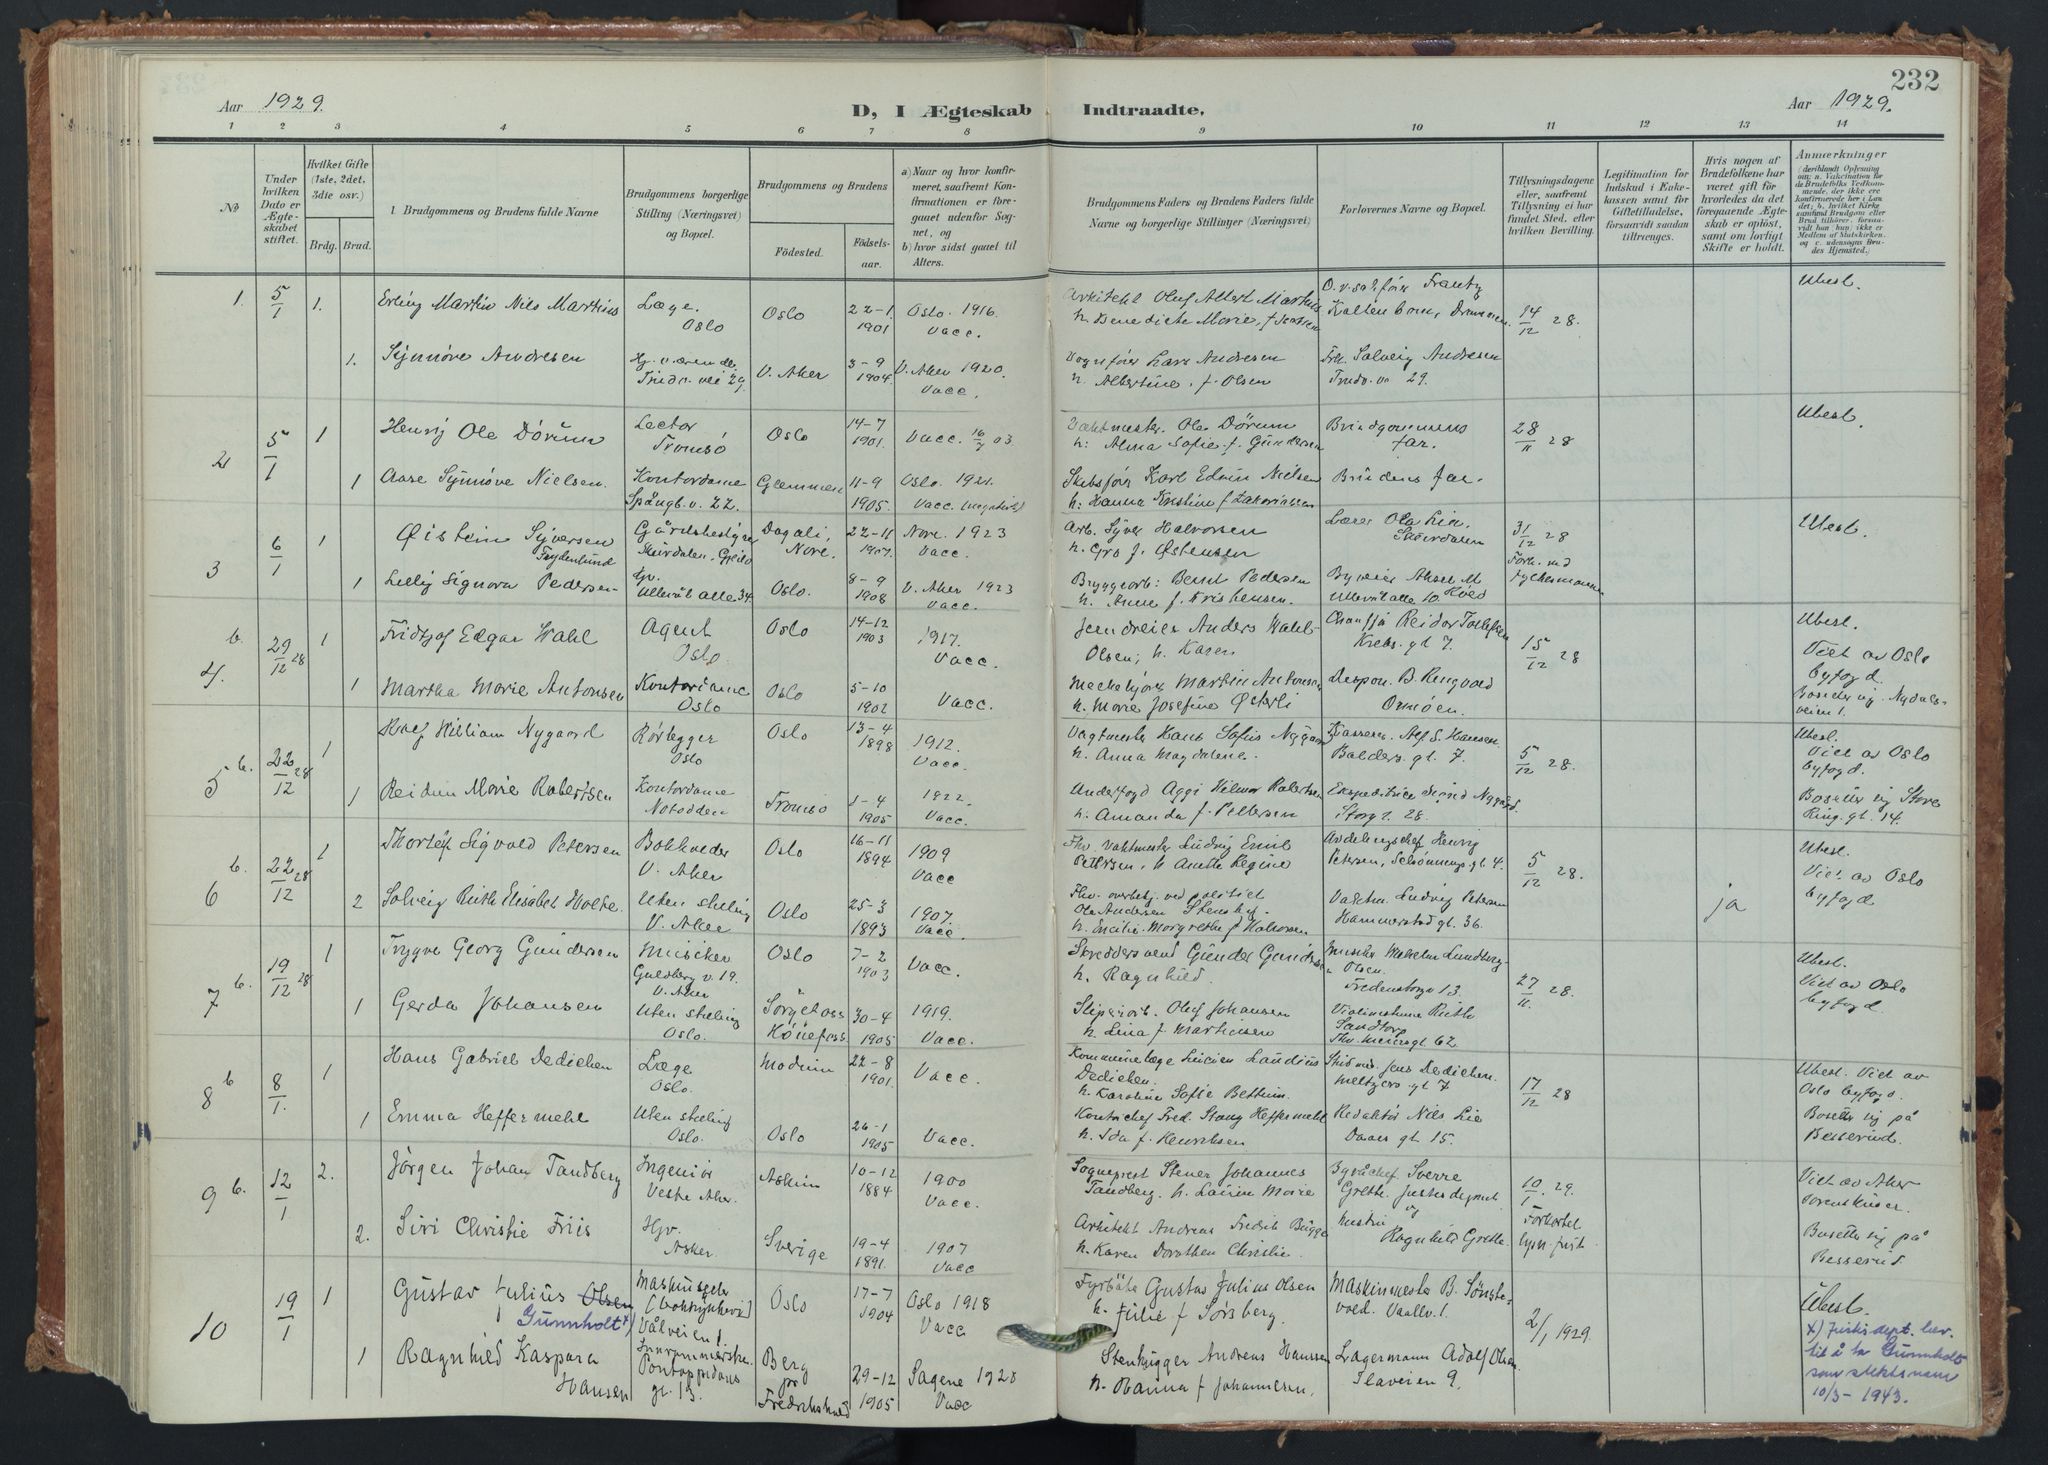 232
Aar 1929.
D, I Ægteskab Indtraadte.
Aar 1929.
1 2 3 4 5 6 7 8 9 10 11 12 13 14
No
Under hvilken Dato er Ægteskabet stiftet.
Hvilket Gifte (1ste, 2det, 3die osv.)
Brdg. Brud.
1. Brudgommens og Brudens fulde Navne
Brudgommens borgerlige Stilling (Næringsvei) og Bopæl.
Brudgommens og Brudens
Födested.
Födselsaar.
a) Naar og hvor konfirmeret, saafremt Konfirmationen er foregaaet udenfor Sognet, og
b) hvor sidst gaaet til Alters.
Brudgommens Faders og Brudens Faders fulde Navne og borgerlige Stillinger (Næringsvei)
Forlovernes Navne og Bopæl.
Tillysningsdagene eller, saafremt Tillysning ei har fundet Sted, efter hvilken Bevilling.
Legitimation for Indskud i Enkekassen samt for Giftetilladelse, forsaavidt saadan tiltrænges.
Hvis nogen af Brudefolkene har været gift før hvorledes da det foregaaende Ægteskab er opløst, samt om lovligt Skifte er holdt.
Anmærkninger
1. 5/1 1. Erling Martin Nils Martins Læge. Oslo Oslo 22-1 1901 Oslo. 1916. Vacc. Arkitekt Oluf Albert Martins h. Benedicte Marie, f. Jenssen Kaltenborn, Drammen. 14/12 28. Ubesl.
1. Synnøve Andresen Trudv. vei 29. V. Aker 3-9 1904. V. Aker 1920. Vacc. Vognfører Lars Andresen h. Albertine. f. Olsen Frk. Solveig Andresen Trudv. v. 29.
2 5/1 1 Henrij Ole Dörum Lector Tromsö Oslo 14-7 1901. Vacc. 03 Vaktmester. Ole Dörum h: Alma Sofie f. Gundersen Brudgommens far. 28/11 28 Ubesl.
1 Aase Synnöve Nielsen. Kontordame Spångb. v. 22. Glemmen 11-9 1905. Oslo. 1921. Vacc. Skibsfører Karl Edvin Nielsen h: Hanna Kristine f Zakariassen Brudens far.
3 6/1 1 Øistein Syversen Frydenlund Gårdsbestyrer Skurdalen, Geilo Dagali, Nore. 22-11 1907. Nore. 1923 Vacc. Arb. Syver Halvorsen h. Gro f. Østensen Lærer Ola Lia. Skurdalen 31/12 28 Ubesl.
1 Lilly Signora Pedersen Hj. Ullevål alle 34. Oslo. 8-9 1908 V. Aker 1923 Vacc. Bryggearb: Bernt Pedersen h. Anne f. Kristensen. Ullevål alle 10.
4. b. 29/12 28 1 Fridtjof Edgar Wahl Agent Oslo. Oslo 14-12 1903 1917. Vacc. Jerndreier Anders Wahl-Olsen; h. Karen Krebs. gt 7. 15/12 28 Ubesl. Viet av Oslo byfogd. Nydalsveien 1.
1 Martha Marie Antonsen Kontordame Oslo Oslo 5-10 1902 Vacc. Martin Antonsen h. Marie Josefine Østerli Despon. B. Ringvold Ormöen.
5 b. 22/12 28 1 Rolf William Nygaard Rørlegger Oslo Oslo 13-4 1898 1912. Vacc. Vagtmester Hans Sofus Nygaard h. Anna Magdalene. Kasserer Alf S. Hansen. Balders. gt. 7. 5/12 28. Ubesl. Viet av Oslo byfogd. Bosetter sig Store Ring. gt. 14.
1 Reidun Marie Robertsen Kontordame Notodden Tromsö 1-4 1905 1922. Vacc. Underfogd Aggi Hilmar Robertsen h. Amanda f. Pettersen Ekspeditrice Nygård. Storg. 28.
6 b. 22/12 28 1 Thorleif Sigvald Petersen Bokholder V. Aker Oslo 16-11 1894 1909 Vacc Fhv. vaktmester Ludvig Emil Petersen, h. Anette Regine Avdelingschef Henrij Petersen, Schönnings gt. 4. 5/12 28. Ubesl. Viet av Oslo byfogd
2 Solveig Ruth Elisabet Holte. Uten stilling V. Aker Oslo 25-3 1893 1907. Vacc. Fhv. overbetj. ved politiet Ole Andersen Stenshof. h. Emilie Margrethe f Halvorsen Vaktm. Ludvig Petersen Hammerstad gt. 36. ja
7 b. 19/12 28 1 Trygve Georg Gundersen Musiker Guldberg v. 19. V. Aker Oslo 7-2 1903 Vacc. Skreddersvend Gunder Gundersen h. Ragnhild. Musiker Wilhelm Lundberg-Olsen. Fredensborgv 13. 27/11 28. Ubesl. Viet av Oslo byfogd.
1 Gerda Johansen Uten stilling Oslo. Hönefoss. 30-4 1905 1919. Vacc. Sliperiarb. Olaf Johansen h. Lina f Martinsen Violinistinne Ruth Sandtorp Thv. Meiersgt 62.
8 b 8/1. 1 Hans Gabriel Dedichen Læge Oslo. Modum 22-8 1901. Vacc. Kommunelæge Lucien Laudius Dedichen. h. Karoline Sofie Bettum. Skibsm. Jens Dedichen. Meltzers gt 7 17/12 28 Ubesl. Viet av Oslo byfogd. Bosetter sig på Besserud.
1 Emma Heffermehl Uten stilling Oslo. Oslo 26-1 1905 Vacc. Kontorchef Fred. Stang Heffermehl h. Ida f. Henriksen Redaktør Nils Lie Daaes gt. 15.
9 b. 12/1 2. Jörgen Johan Tandberg Ingeniör Vestre Aker. Askim 10-12 1884 1900 Vacc. Sogneprest Stener Johannes Tandberg. h. Laura Marie Byråchef Sverre Grette. Justisdepmt. og 10/1. 29. Forkortet lysn. frist Viet av Aker sorenskriver. Bosetter sig på Besserud.
2. Siri Christie Friis Hjv. Asker. Sverige 19-4 1891. 1907 Vacc Arkitekt Andreas Fredrik Bugge h. Karen Dorothea Christie. hustru Ragnhild Grette.
10 19/1 1 Gustav Julius Olsen Gunnholt x) Vålveien 1. Oslo 17-7 1904 Oslo 1918 Vacc Fyrböter Gustav Julius Olsen h. Julie f Sörsberg. Maskinmester B. Sönstevold. Vaallv. 1. 2/1 1929. Ubesl.
x) Justisdept. bev. til å ta Gunnholt som slektsnavn 10/3-1943.
1 Ragnhild Kaspara Hansen Innrammerske. Pontoppidans gt. 13. Berg pr Fredrikshald 29-12 1905 Sagene 1920 Vacc Stenhugger Andreas Hanssen h. Hanna f Johannesen. Lagermann Adolf Olsen Ilaveien 9.